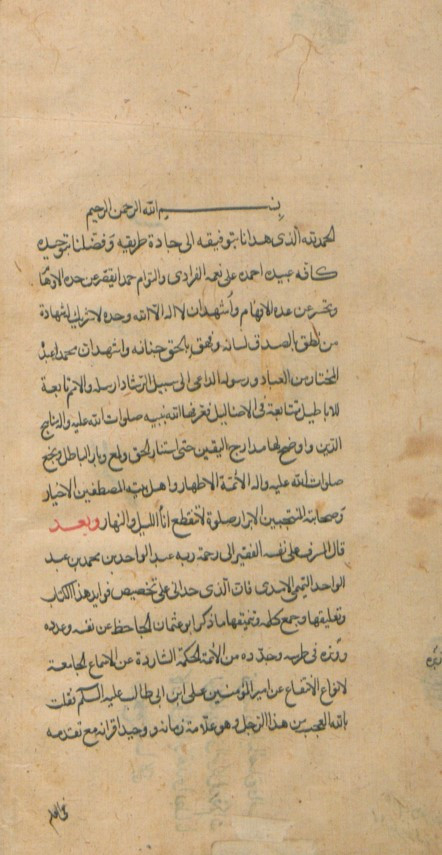 بسم الله الرحمن الرحيم
الحمد لله الذى هدانا بتوفيقه الى جادة طريقه وفضلنا بتوحيده
كافة عبيده احمده على نعمه الفرادى والتوام حمدا يقصر عن حده الاوهام
ويحسر عن عده الافهام واشهد ان لا اله الا الله وحده لا شريك له شهادة
من نطق بالصدق لسانه وفهق بالحق جنانه واشهد ان محمدا عبده
المختار من العباد ورسوله الداعى الى سبيل الرشاد ارسله والامم تابعة
للاباطيل متتابعة فى الاضاليل فعرفها الله بنبيه صلوات الله عليه واله مناهج
الدين واوضح لها مدارج اليقين حتى استنار الحق ولمع وبار الباطل ونجع
صلوات الله عليه واله الائمة الاطهار واهل بيته المصطفين الاخيار
وصحابته المنتجبين الابرار صلوة لا تنقطع اناء الليل والنهار وبعد
قال المسرف على نفسه الفقير الى رحمة ربه عبد الواحد بن محمد بن عبد
الواحد التميمى الامدى فان الذى حدانى على تخصيص فوايد هذا الكتاب
وتعليقها وجمع كلمه وتنميقها ما ذكر ابو عثمان الجاحظ عن نفسه وعدده
وزبره فى طرسه وحدده من المائة الحكمة الشاردة عن الاسماع الجامعة
لانواع الانتفاع عن امير المؤمنين على ابن ابى طالب عليه السلم فقلت
يالله العجب من هذا الرجل وهو علامة زمانه ووحيد اقرانه مع تقدمه